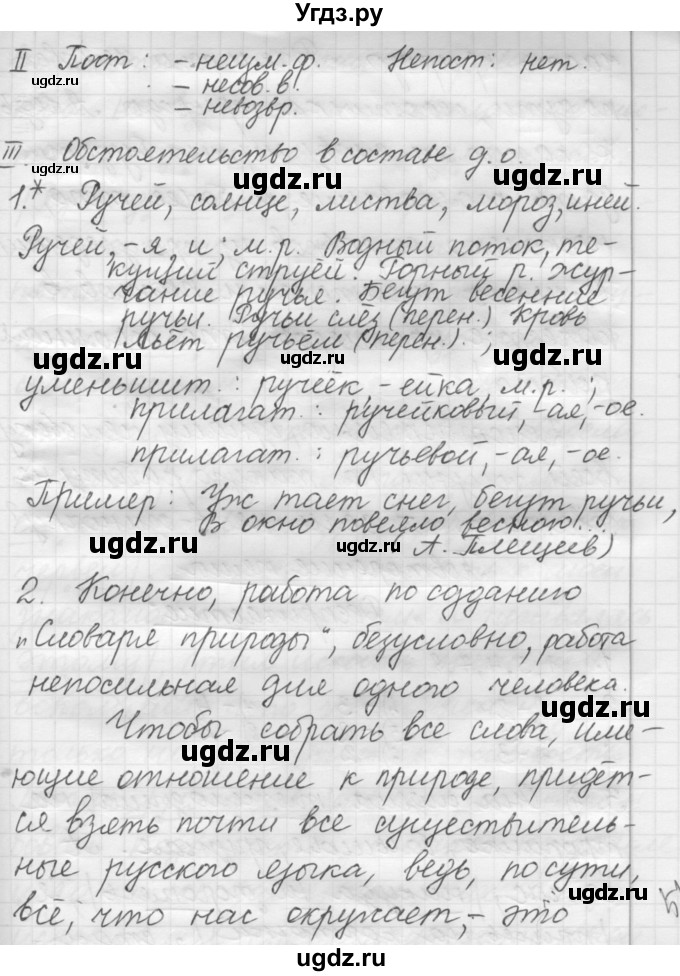 Угдз.ру
II Пост: – неизм. ф. Непост: нет.
ugdz.ru – несов. в. ugdz.ru
– невозвр.
III Обстоятельство в составе д. о.
ugdz.ru ugdz.ru
1.* Ручей, солнце, листва, мороз, иней.
Ручей, -я, и; м.р. Водный поток, те-
кущий струёй. Горный р. Жур-
чание ручья. Бегут весенние
ручьи. Ручьи слёз (перен.) Кровь
льёт ручьём (перен.). ;
ugdz.ru ugdz.ru ugdz.ru
уменьшит.: ручеёк, -ейка, м.р.;
прилагат.: ручейковый, -ая, -ое.
ugdz.ru ugdz.ru
прилагат.: ручьевой, -ая, -ое.
Пример: Уж тает снег, бегут ручьи,
В окно повеяло весною...
ugdz.ru ugdz.ru А. Плещеев)
2. Конечно, работа по созданию
ugdz.ru ugdz.ru
„Словаря природы“, безусловно, работа
непосильная для одного человека.
ugdz.ru
Чтобы собрать все слова, име-
ugdz.ru
ющие отношение к природе, придёт-
ся взять почти все существитель-
ugdz.ru ugdz.ru
ные русского языка, ведь, по сути,
всё, что нас окружает, – это
ugdz.ru